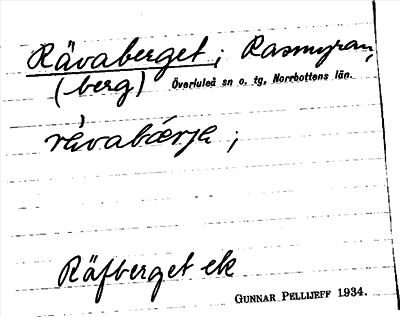 Rävaberget; Rasmyran,
(berg) Överluleå sn o. tg, Norrbottens län.
rävabærje;
Räfberget ek
GUNNAR PELLIJEFF 1934.